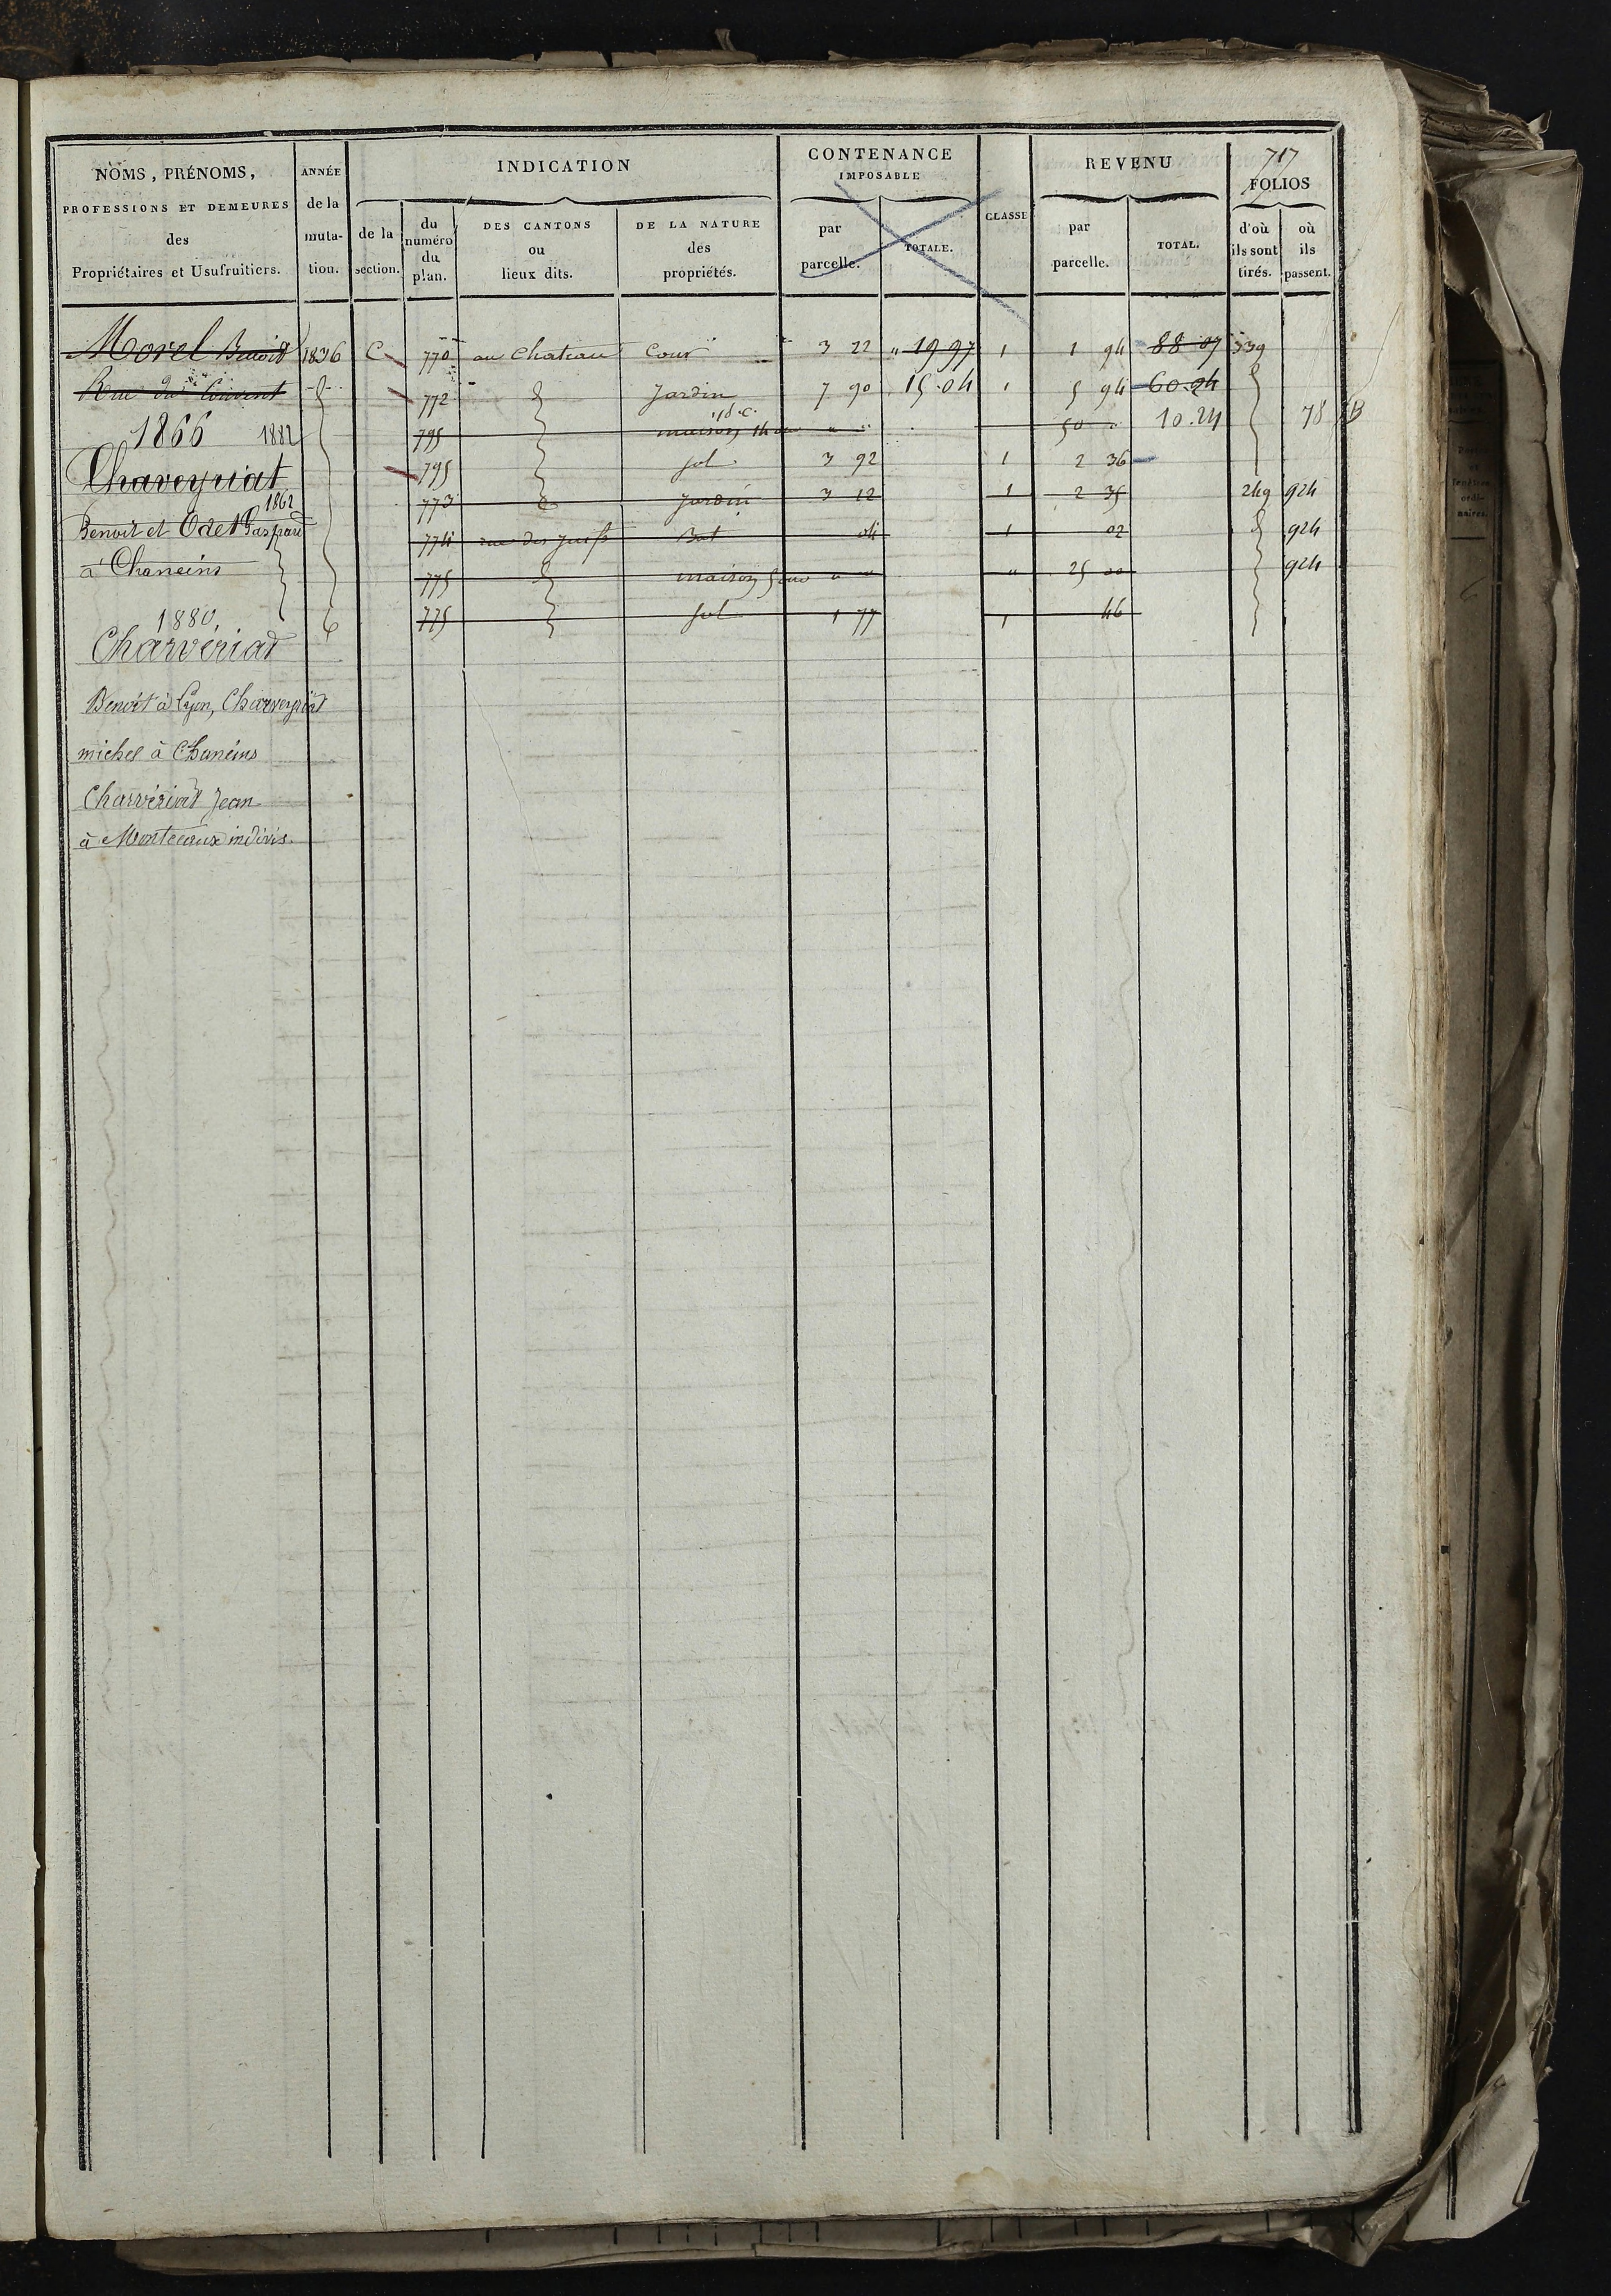 717
NOMS, PRÉNOMS, PROFESSIONS ET DEMEURES des Propriétaires et Usufruitiers.
ANNÉE de la muta- tion.
INDICATION
de la section.
du numéro du plan.
DES CANTONS ou lieux dits.
DE LA NATURE des propriétés.
CONTENANCE IMPOSABLE
par parcelle.
TOTALE.
CLASSE
REVENU
par parcelle.
TOTAL.
FOLIOS
d'où ils sont tirés.
où ils passent.
Morel Benoit 1836 C 770 au Chateau Cour 3 22 " 19 97 1 1 94 88 07 339
Rue du Couvent 772 Jardin 7 90 15.04 1 5 94 60.24
1866 1882 795 maison 50 10.24 78
Chaveyriat 795 sol 3 92 1 2 36
1862 773 Jardin 3 12 1 2 35 249 924
Benoit et Odet Gaspard 774 rue des Juifs Bat 04 1 02 924
à Chaneins 775 maison " " " 25 00 924
1880 775 Sol 1 77 1 46
Charvériat
Benoit à Lyon, Charveyriat
michel à Chaneins
Charvériat Jean
à Montceaux indivis.